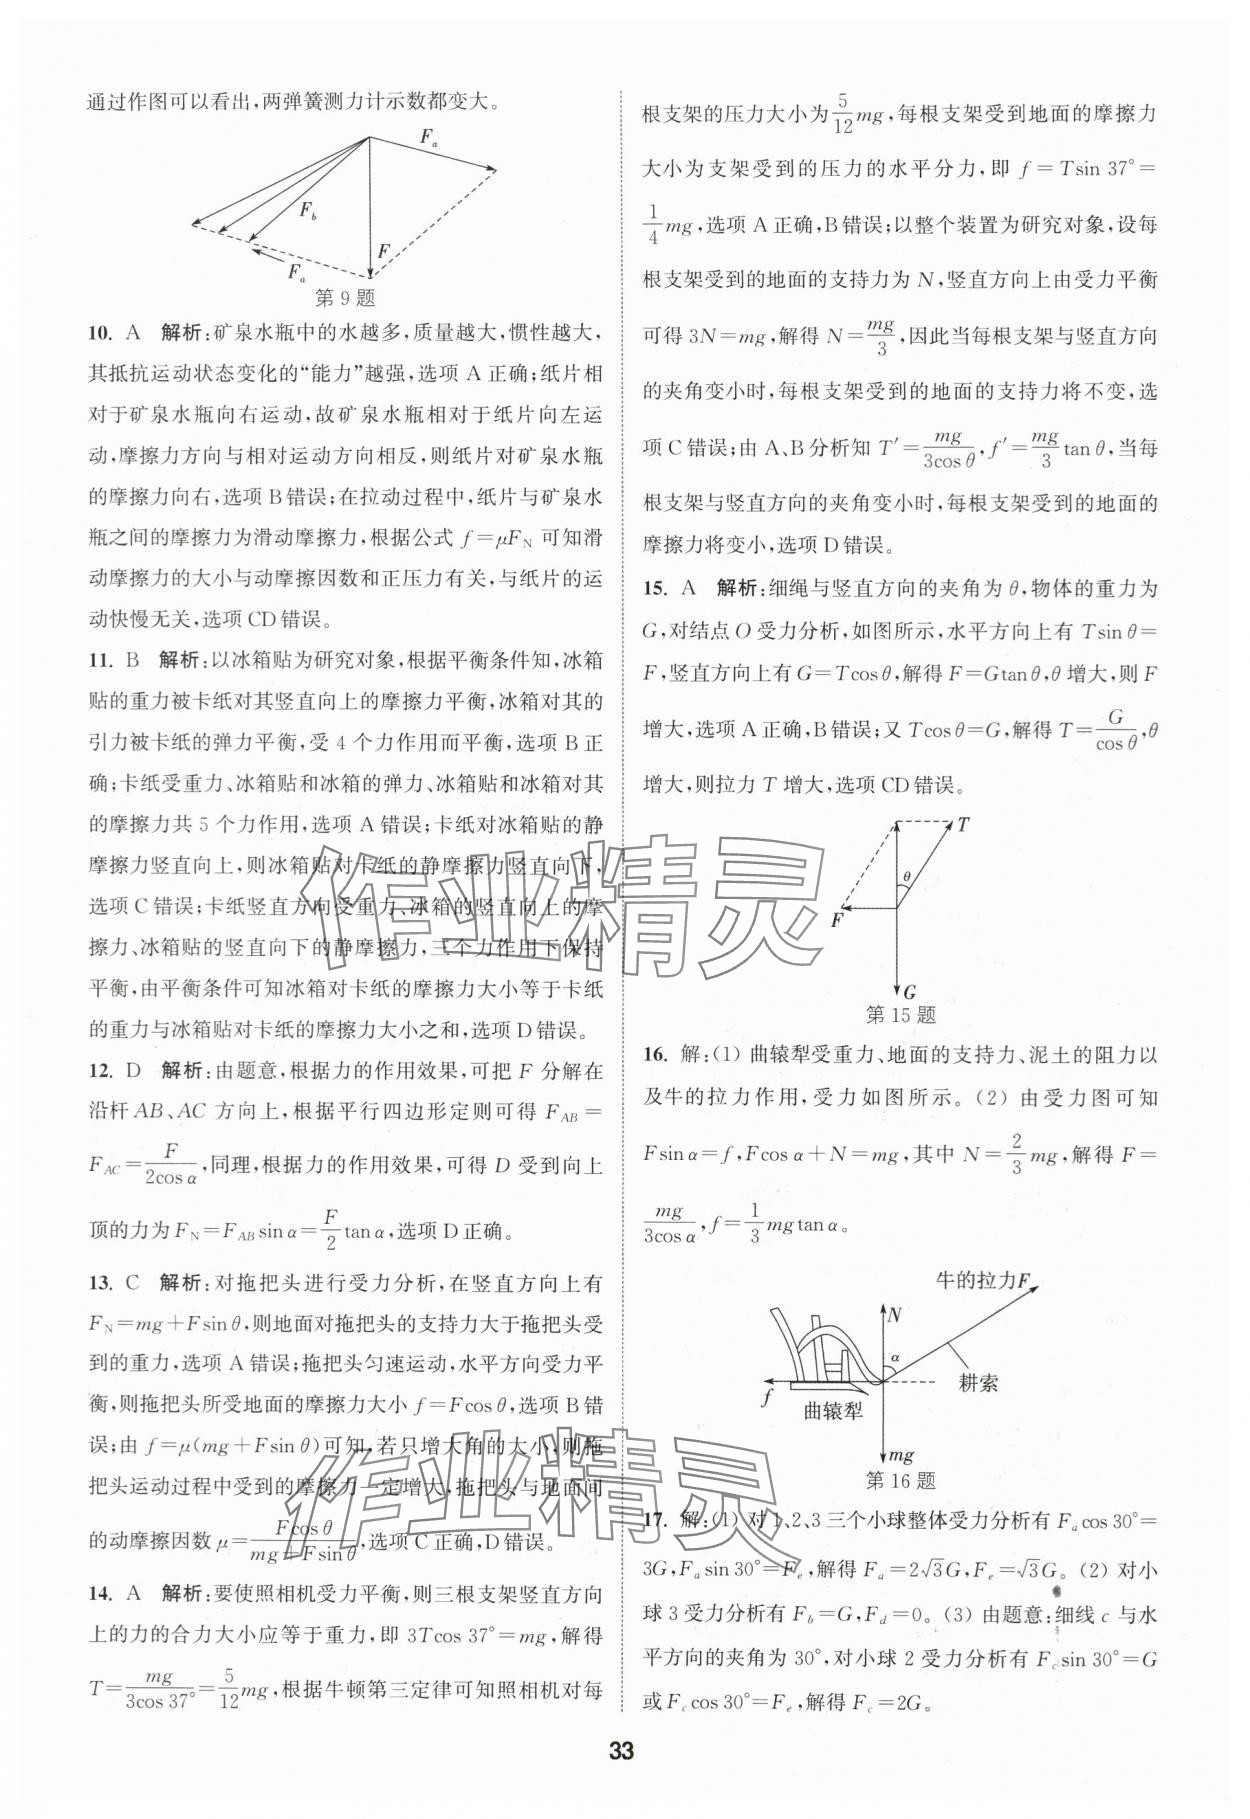 通过作图可以看出,两弹簧测力计示数都变大。
F_a
F_b
F
F_a
第9题
10. A 解析:矿泉水瓶中的水越多,质量越大,惯性越大,
其抵抗运动状态变化的“能力”越强,选项A正确;纸片相
对于矿泉水瓶向右运动,故矿泉水瓶相对于纸片向左运
动,摩擦力方向与相对运动方向相反,则纸片对矿泉水瓶
的摩擦力向右,选项B错误;在拉动过程中,纸片与矿泉水
瓶之间的摩擦力为滑动摩擦力,根据公式 f=μF_N 可知滑
动摩擦力的大小与动摩擦因数和正压力有关,与纸片的运
动快慢无关,选项CD错误。
11. B 解析:以冰箱贴为研究对象,根据平衡条件知,冰箱
贴的重力被卡纸对其竖直向上的摩擦力平衡,冰箱对其的
引力被卡纸的弹力平衡,受4个力作用而平衡,选项B正
确;卡纸受重力、冰箱贴和冰箱的弹力、冰箱贴和冰箱对其
的摩擦力共5个力作用,选项A错误;卡纸对冰箱贴的静
摩擦力竖直向上,则冰箱贴对卡纸的静摩擦力竖直向下,
选项C错误;卡纸竖直方向受重力、冰箱的竖直向上的摩
擦力、冰箱贴的竖直向下的静摩擦力,三个力作用下保持
平衡,由平衡条件可知冰箱对卡纸的摩擦力大小等于卡纸
的重力与冰箱贴对卡纸的摩擦力大小之和,选项D错误。
12. D 解析:由题意,根据力的作用效果,可把 F 分解在
沿杆AB、AC方向上,根据平行四边形定则可得 F_AB=
F_AC=F/(2cos α),同理,根据力的作用效果,可得 D 受到向上
顶的力为 F_N=F_AB sin α=F/2 tan α,选项D正确。
13. C 解析:对拖把头进行受力分析,在竖直方向上有
F_N=mg+Fsin θ,则地面对拖把头的支持力大于拖把头受
到的重力,选项A错误;拖把头匀速运动,水平方向受力平
衡,则拖把头所受地面的摩擦力大小 f=Fcos θ,选项B错
误;由 f=μ(mg+Fsin θ)可知,若只增大角的大小,则拖
把头运动过程中受到的摩擦力一定增大,拖把头与地面间
的动摩擦因数 μ=Fcos θ/(mg+Fsin θ),选项C正确,D错误。
14. A 解析:要使照相机受力平衡,则三根支架竖直方向
上的力的合力大小应等于重力,即 3Tcos 37°=mg,解得
T=mg/(3cos 37°)=5/12 mg,根据牛顿第三定律可知照相机对每
根支架的压力大小为5/12 mg,每根支架受到地面的摩擦力
大小为支架受到的压力的水平分力,即 f=Tsin 37°=
1/4 mg,选项A正确,B错误;以整个装置为研究对象,设每
根支架受到的地面的支持力为 N,竖直方向上由受力平衡
可得 3N=mg,解得 N=mg/3,因此当每根支架与竖直方向
的夹角变小时,每根支架受到的地面的支持力将不变,选
项C错误;由A、B分析知 T′=mg/(3cos θ),f′=mg/3 tan θ,当每
根支架与竖直方向的夹角变小时,每根支架受到的地面的
摩擦力将变小,选项D错误。
15. A 解析:细绳与竖直方向的夹角为 θ,物体的重力为
G,对结点 O 受力分析,如图所示,水平方向上有 Tsin θ=
F,竖直方向上有 G=Tcos θ,解得 F=Gtan θ,θ 增大,则 F
增大,选项A正确,B错误;又 Tcos θ=G,解得 T=G/cos θ,θ
增大,则拉力 T 增大,选项CD错误。
T
θ
F
G
第15题
16. 解:(1) 曲辕犁受重力、地面的支持力、泥土的阻力以
及牛的拉力作用,受力如图所示。(2) 由受力图可知
Fsin α=f,Fcos α+N=mg,其中 N=2/3 mg,解得 F=
mg/(3cos α),f=1/3 mgtan α。
牛的拉力F
N
α
耕索
f
曲辕犁
mg
第16题
17. 解:(1) 对1、2、3三个小球整体受力分析有 F_a cos 30°=
3G,F_a sin 30°=F_e,解得 F_a=2√3G,F_e=√3G。(2) 对小
球3受力分析有 F_b=G,F_d=0。(3) 由题意:细线 c 与水
平方向的夹角为 30°,对小球2受力分析有 F_c sin 30°=G
或 F_c cos 30°=F_e,解得 F_c=2G。
作业精灵
作业精灵
33